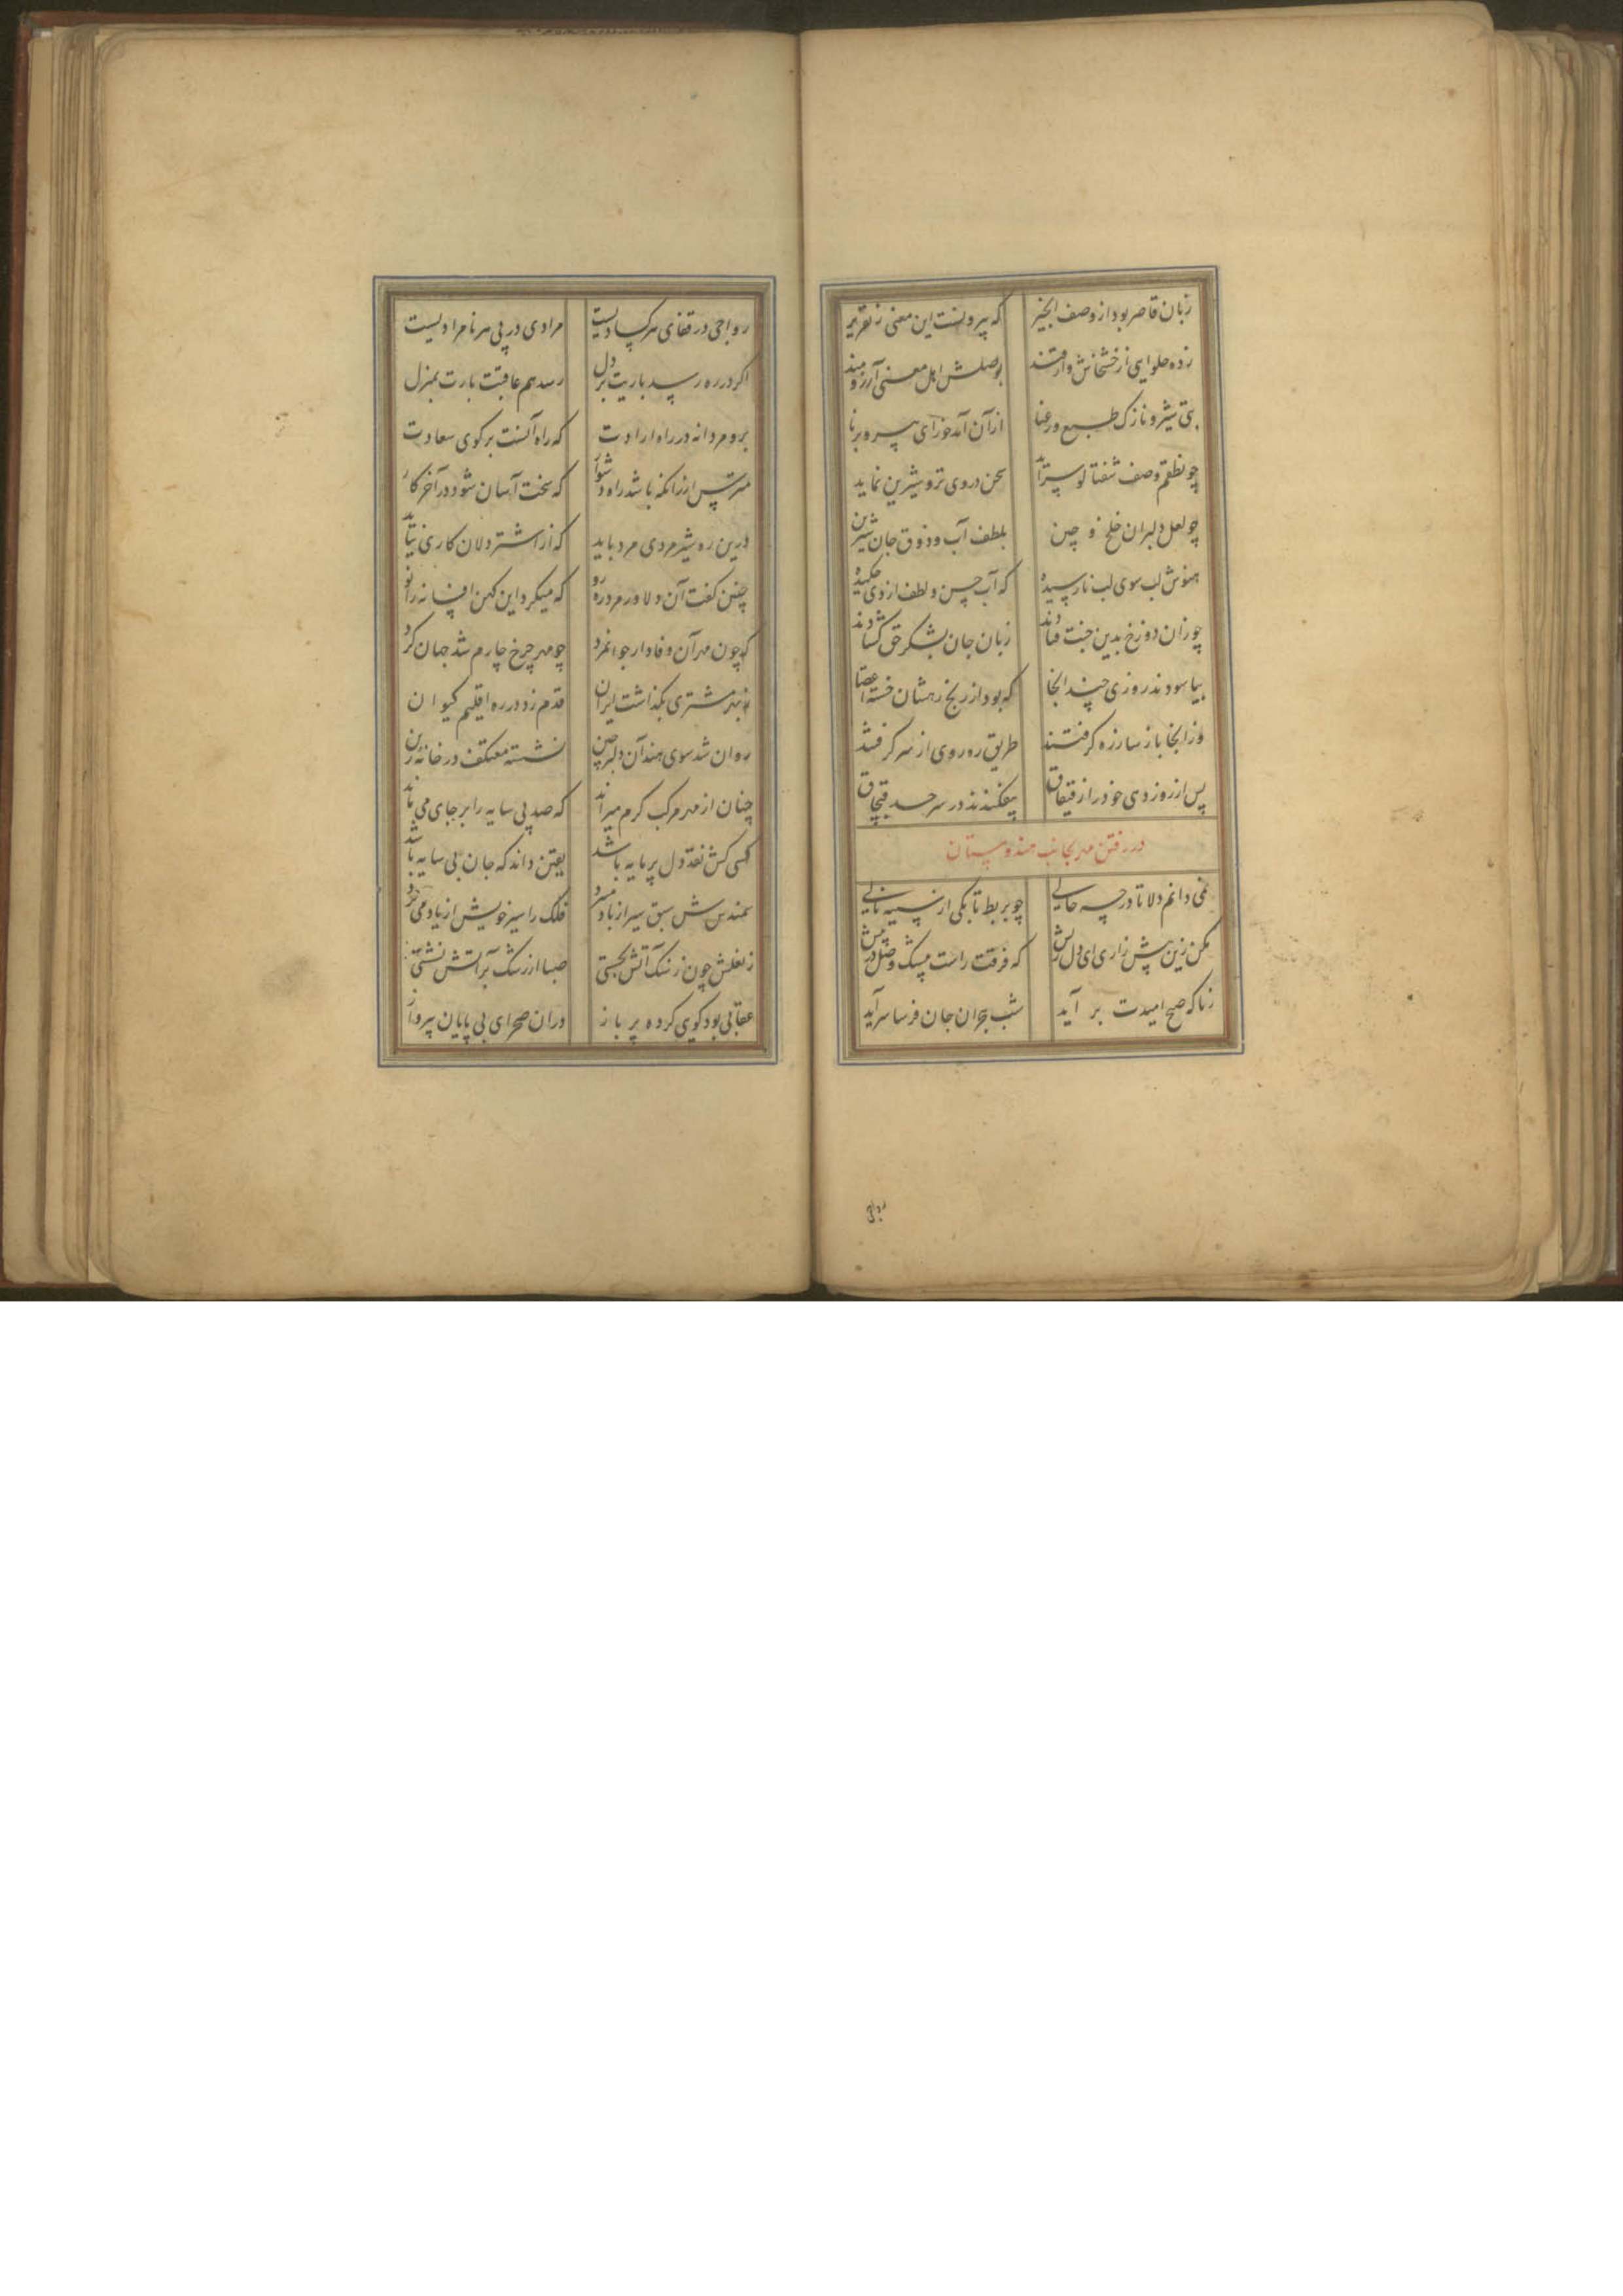 زبان قاصر بود از وصف انجیر که بیرونست این معنی ز تقریر
زده حلوایی از خشخاش و از قند بوصلش اهل معنی آرزومند
بتی شیرو نازک طبع و رعنا ازآن آمد خورای پیر و برنا
چو نطقم وصف شفتالو سراید سخن در وی تر و شیرین نماید
چو لعل دلبران خلخ و چین بلطف آب و ذوق جان شیرین
هنوزش لب سوی لب نارسیده که آب حسن و لطف از وی چکیده
چو زان دوزخ بدین جنت فتادند زبان جان بشکر حق گشادند
بیاسودند روزی چند انجا که بود از رنج رهشان خسته اعضا
وز انجا باز سازره گرفتند طریق ره روی از سر گرفتند
پس از روزدی خود را از قیفاق بیفکندند در سرحد قبچاق
در رفتن مهر بجانب هندوستان
نمی دانم دلا تا در چه حالی چو بربط تا بکی از سینه نالی
مکن زین پیش زاری ای دل ریش که فرقت راست میشک وصل در پیش
زناگه صبح امیدت بر آید شب هجران جان فرسا سرآید
رواجی
رواجی در قفای هر کسادیست مرادی در پی هر نامرادیست
اگر در ره رسد باریت بر دل رسد هم عاقبت بارت بمنزل
برو مردانه در راه ارادت که راه آنست بر کوی سعادت
مترس ازرانکه باشد راه دشوار که سخت آسان شود در آخر کار
درین ره شیر مردی مرد باید که از اشتر دلان کاری نیاید
چنین گفت آن دلاور مرد ره رو که میکرد این کهن افسانه را نو
که چون مهر آن وفادار جوانمرد چو مهر چرخ چارم شد جهان گرد
ز بهر مشتری بگذاشت ایران قدم زد در ره اقلیم کیوان
روان شد سوی هند آن دلبر چین نشسته معتکف در خانه زین
چنان از مهر مرکب گرم میراند که صد پی سایه را بر جای می ماند
کسی کش نقد دل پر مایه باشد یقین داند که جان بی سایه باشد
سمندش سبق سیر از باد میبرد فلک را سیر خویش از یاد می برد
ز نعلش چون ز سنگ آتش بجستی صبا از رشک بر آتش نشستی
عقابی بود گویی کرده پر باز دران صحرای بی پایان بپرواز